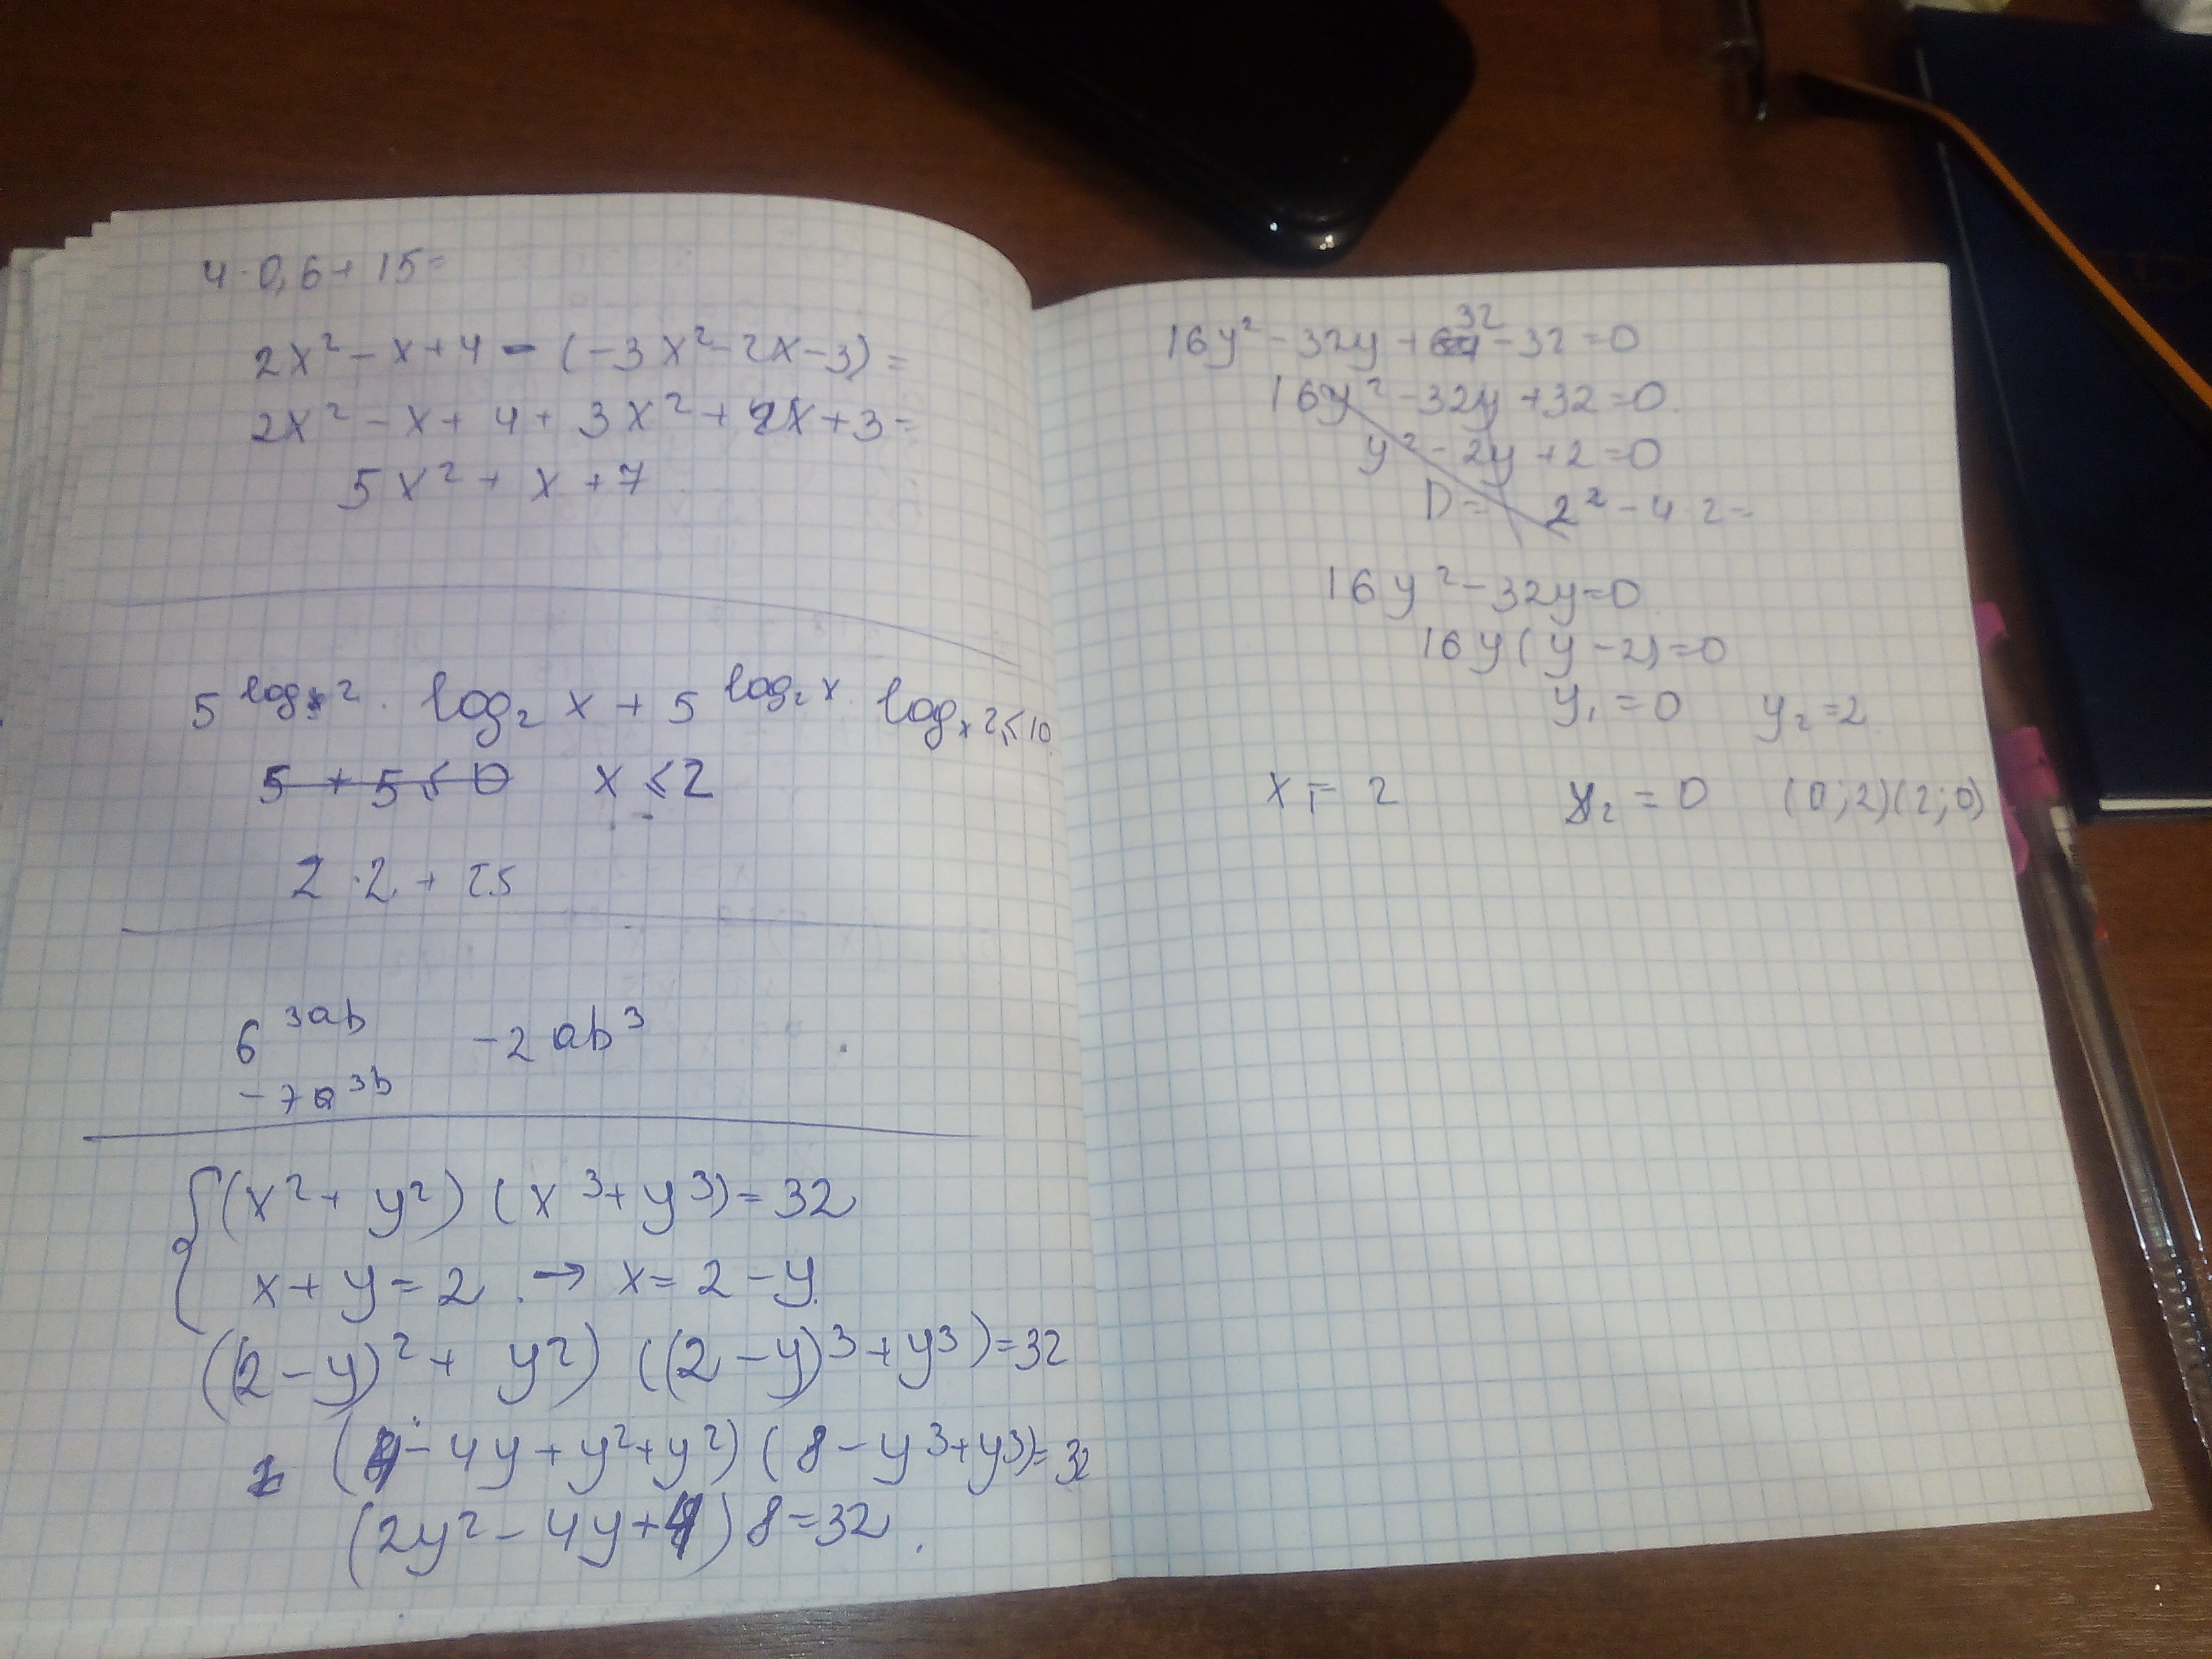 4·0,6+15=
2x²-x+4-(-3x²-2x-3)=
2x²-x+4+3x²+2x+3=
5x²+x+7
5^(logₓ2)·log₂x+5^(log₂x)·logₓ2≤10
5+5≤0 x≤2
2·2+25
6^(3ab) -2ab³
-7a^(3b)
{(x²+y²)(x³+y³)=32
x+y=2 → x=2-y
((2-y)²+y²)((2-y)³+y³)=32
(4-4y+y²+y²)(8-y³+y³)=32
(2y²-4y+4)8=32
16y²-32y+32-32=0
16y²-32y+32=0
y²-2y+2=0
D=2²-4·2=
16y²-32y=0
16y(y-2)=0
y₁=0 y₂=2
x₁=2 x₂=0 (0;2)(2;0)